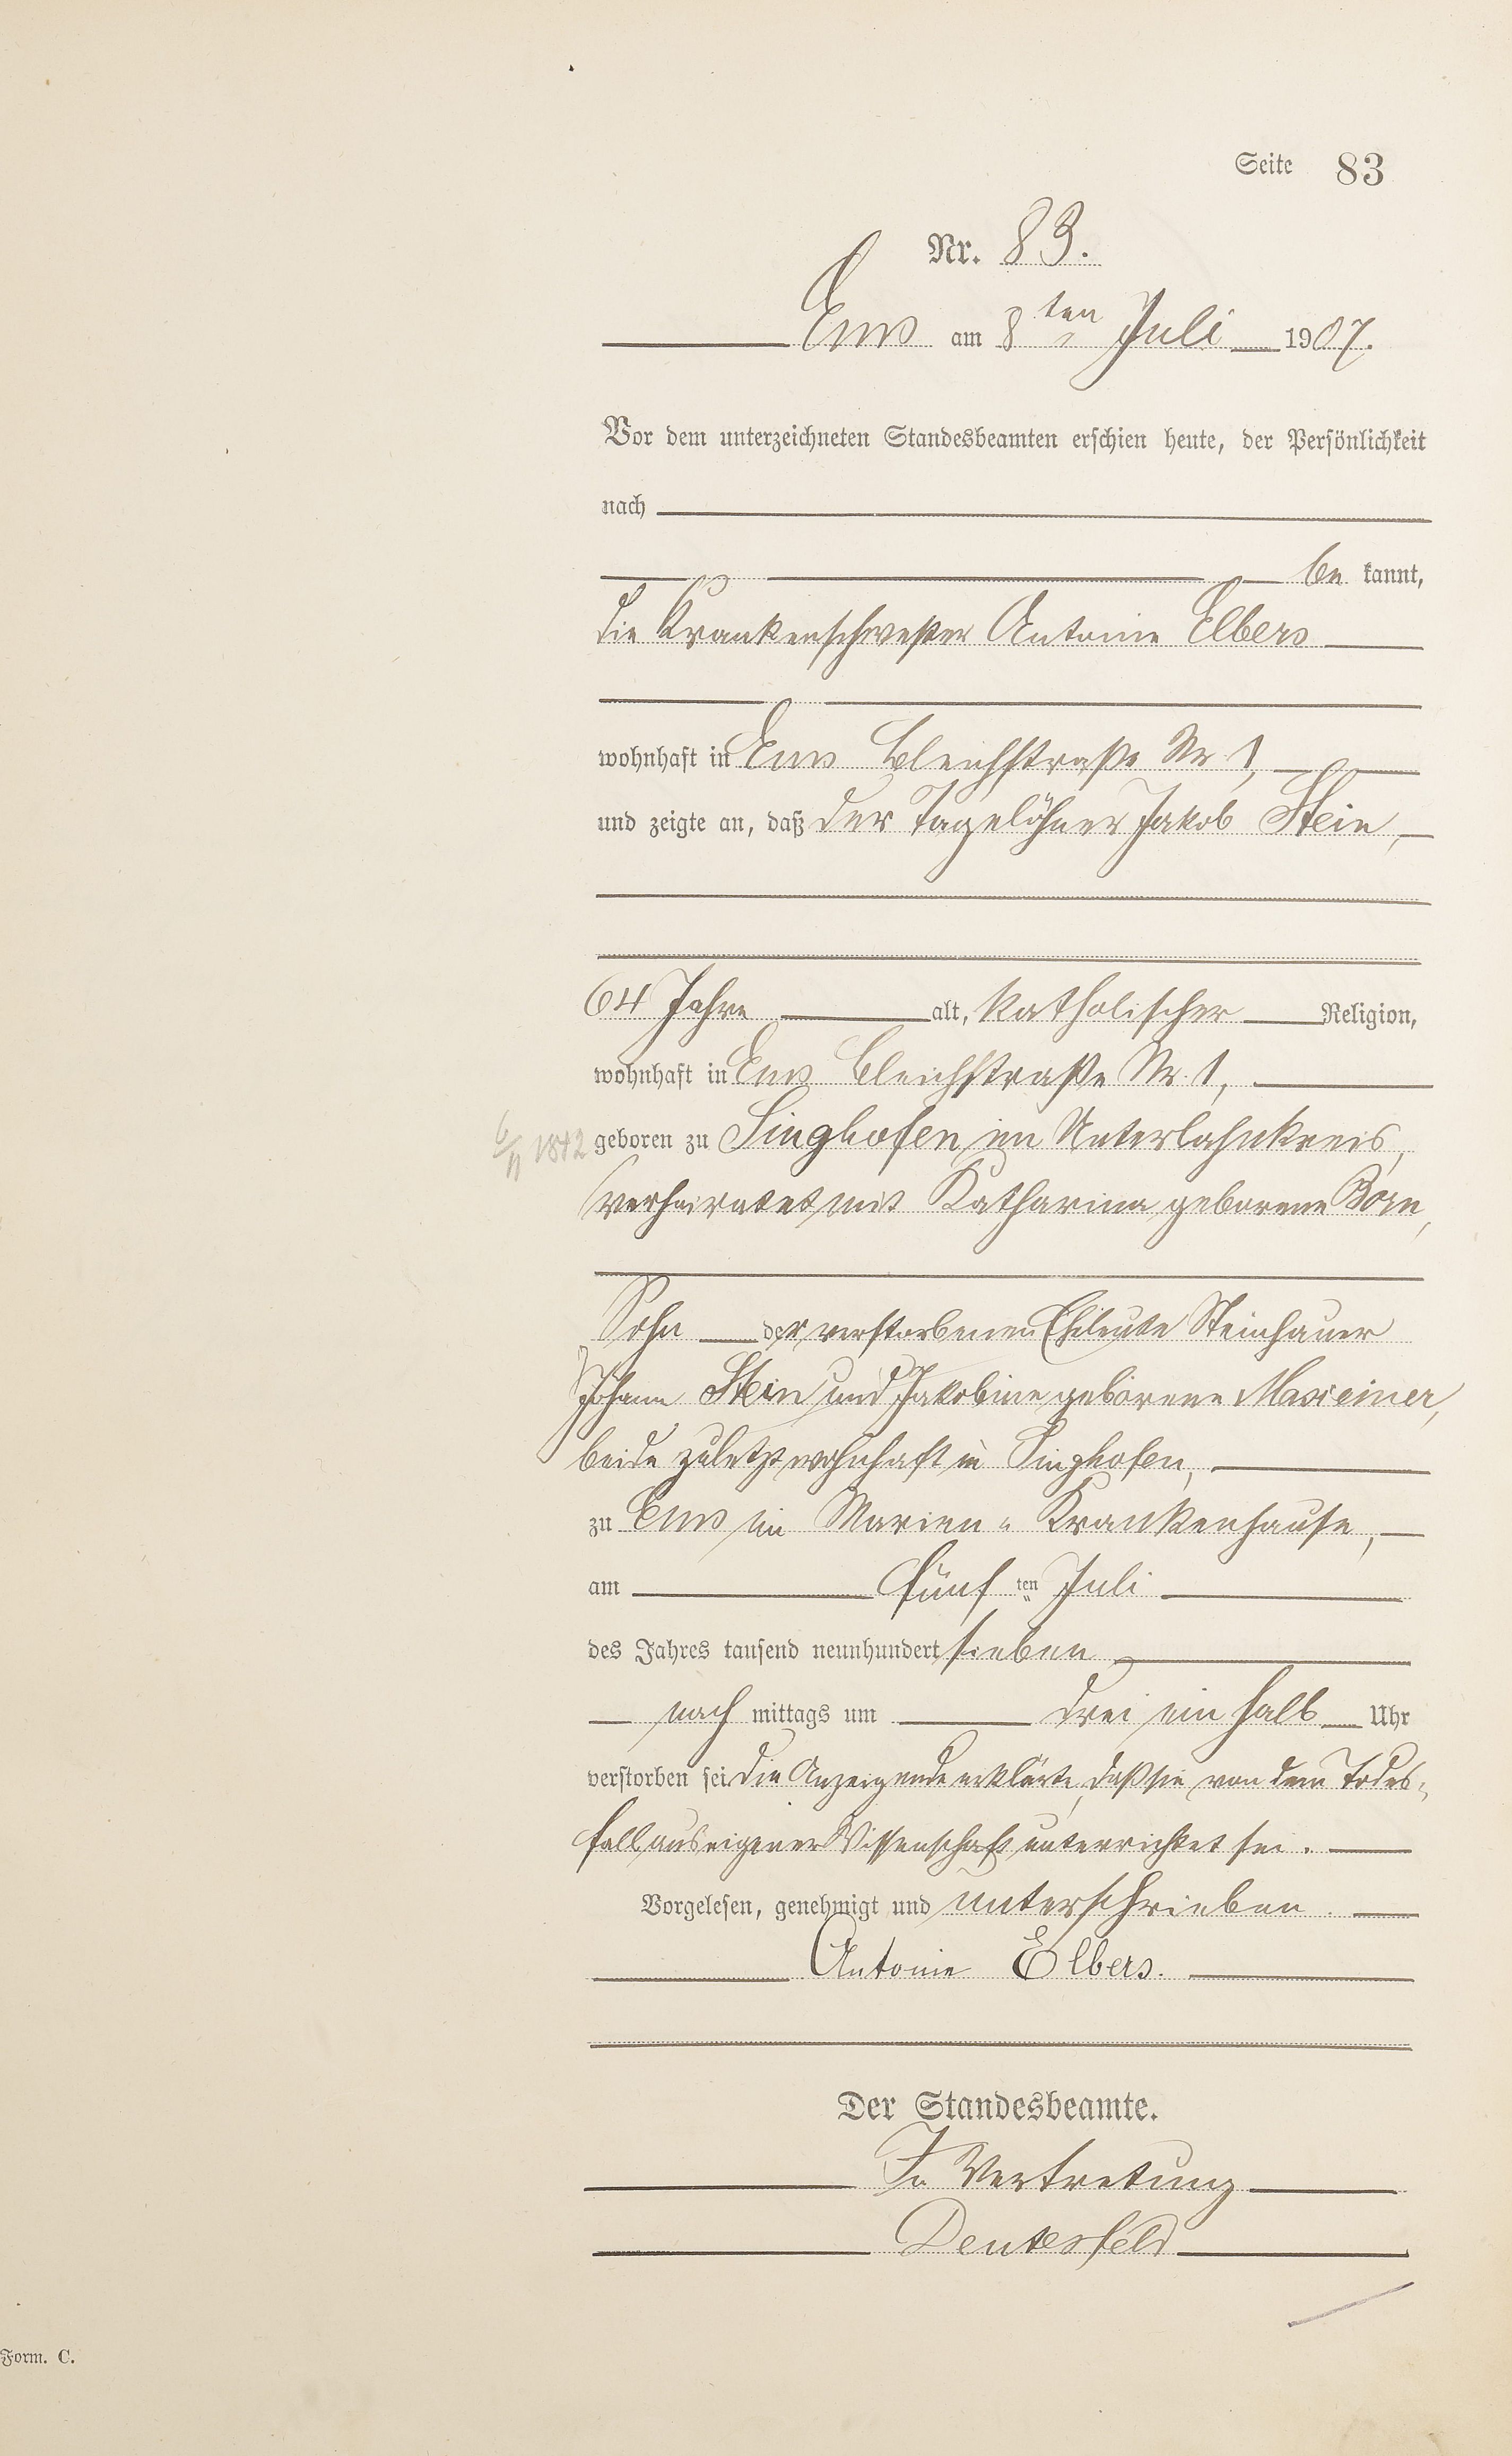 Seite 83
Nr. 83.
Ems am 8ten Juli 1907.
Vor dem unterzeichneten Standesbeamten erschien heute, der Persönlichkeit
nach
be kannt,
die Krankenschwester Antonie Elbers
wohnhaft in Ems Bleichstraße Nr. 1,
und zeigte an, daß der Tagelöhner Jakob Stein,
64 Jahre alt, katholischer Religion,
wohnhaft in Ems Bleichstraße Nr. 1,
6/11 1842 geboren zu Singhofen im Unterlahnkreis,
verheiratet mit Katharina geborene Born,
Sohn der verstorbenen Eheleute Steinhauer
Johann Stein und Jakobine geborene Maxeiner,
beide zuletzt wohnhaft in Singhofen,
zu Ems im Marien-Krankenhause,
am fünf ten Juli
des Jahres tausend neunhundert sieben
nach mittags um drei ein halb Uhr
verstorben sei. Die Anzeigende erklärte, daß sie von dem Todes-
fall aus eigener Wissenschaft unterrichtet sei.
Vorgelesen, genehmigt und unterschrieben.
Antonie Elbers.
Der Standesbeamte.
In Vertretung
Deutesfeld
Form. C.